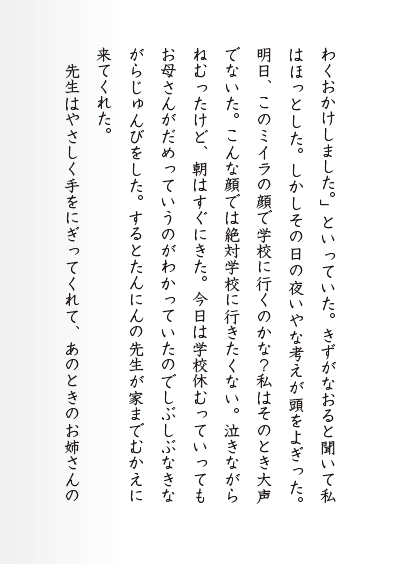 わくおかけしました。」といっていた。きずがなおると聞いて私
はほっとした。しかしその日の夜いやな考えが頭をよぎった。
明日、このミイラの顔で学校に行くのかな?私はそのとき大声
でないた。こんな顔では絶対学校に行きたくない。泣きながら
ねむったけど、朝はすぐにきた。今日は学校休むっていっても
お母さんがだめっていうのがわかっていたのでしぶしぶなきな
がらじゅんびをした。するとたんにんの先生が家までむかえに
来てくれた。
先生はやさしく手をにぎってくれて、あのときのお姉さんの